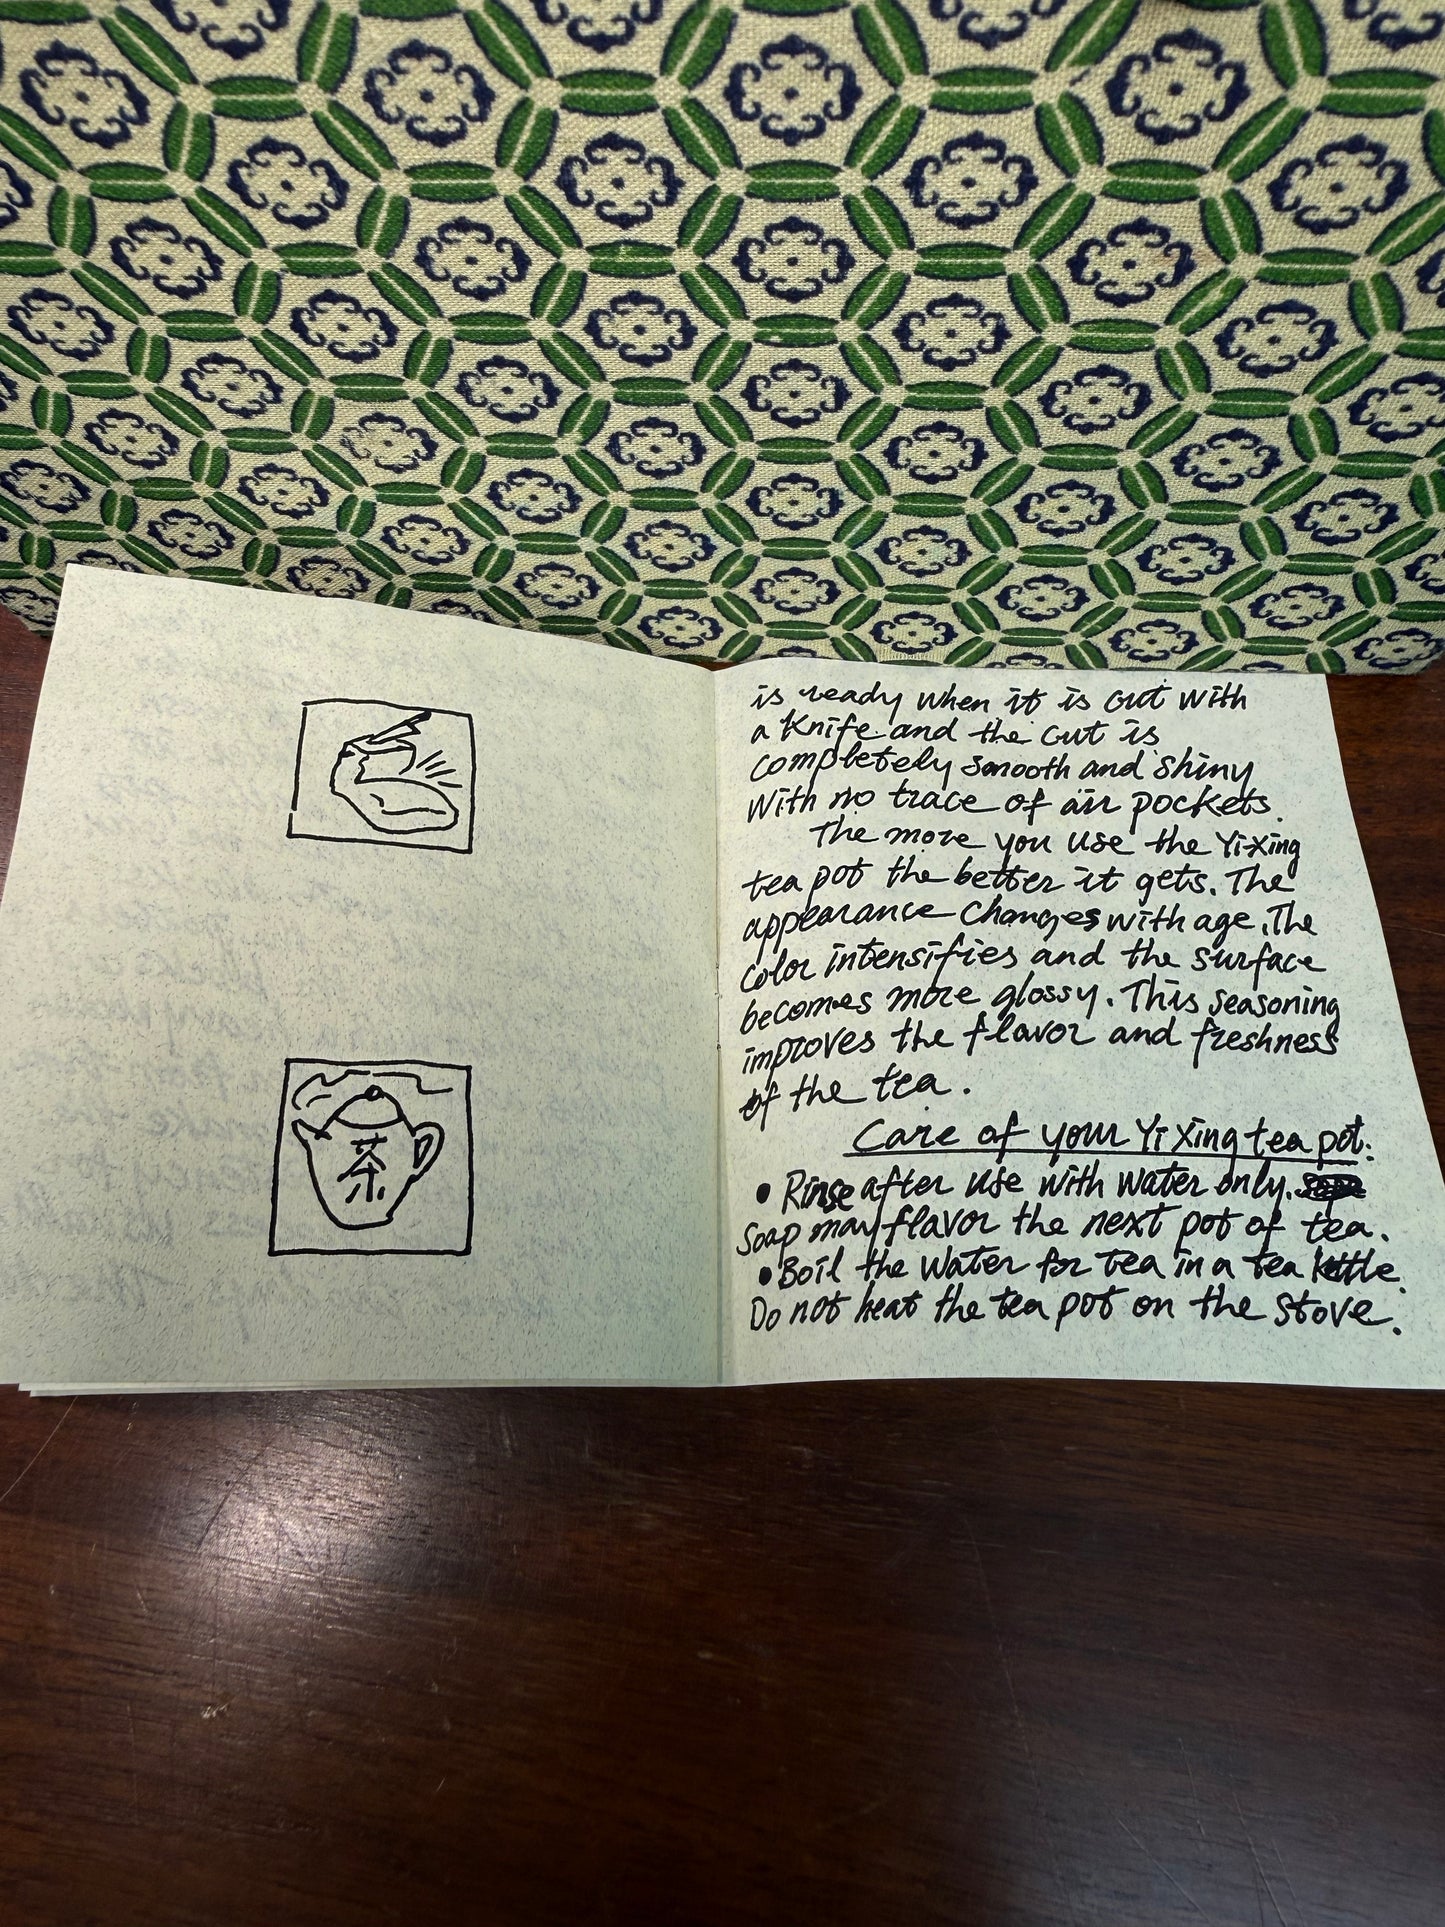 茶
is ready when it is cut with
a Knife and the cut is
completely smooth and shiny
with no trace of air pockets.
The more you use the Yi-Xing
tea pot the better it gets. The
appearance changes with age. The
color intensifies and the surface
becomes more glossy. This seasoning
improves the flavor and freshness
of the tea.
Care of your Yi Xing tea pot:
• Rinse after use with water only.
Soap may flavor the next pot of tea.
• Boil the water for tea in a tea kettle.
Do not heat the tea pot on the stove.